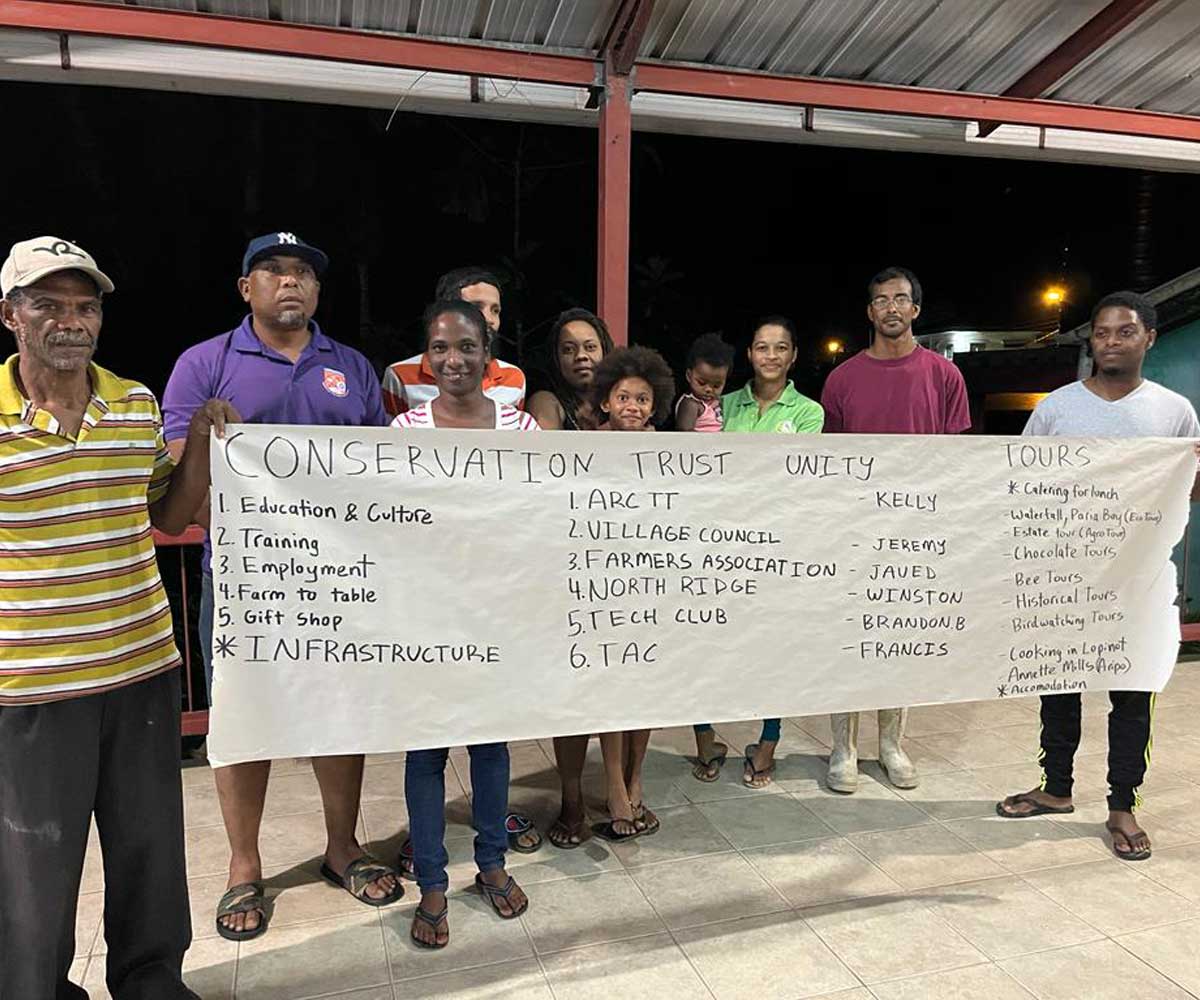 CONSERVATION TRUST UNITY
1. Education & Culture
2. Training
3. Employment
4. Farm to table
5. Gift Shop
* INFRASTRUCTURE
1. ARC TT - KELLY
2. VILLAGE COUNCIL - JEREMY
3. FARMERS ASSOCIATION - JAVED
4. NORTH RIDGE - WINSTON
5. TECH CLUB - BRANDON.B
6. TAC - FRANCIS
TOURS
* Catering for lunch
- Waterfall, Paria Bay (Eco Tour)
- Estate tour (Agro Tour)
- Chocolate Tours
- Bee Tours
- Historical Tours
- Birdwatching Tours
- Cooking in Lopinot
- Annette Mills (Aripo)
* Accomodation
NY